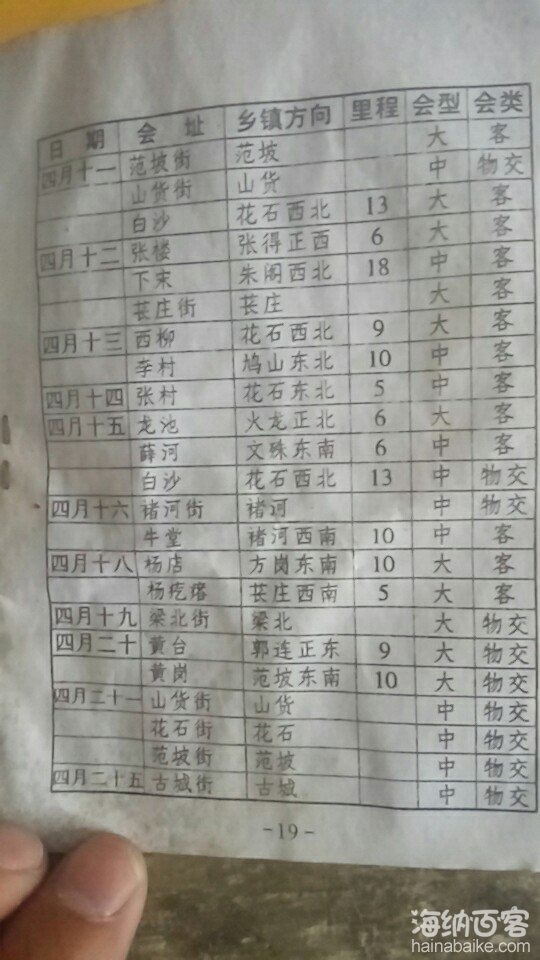 日 期 会 址 乡镇方向 里程 会型 会类
四月十一 范坡街 范坡 大 客
山货街 山货 中 物交
白沙 花石西北 13 大 客
四月十二 张楼 张得正西 6 大 客
下宋 朱阁西北 18 中 客
苌庄街 苌庄 大 客
四月十三 西柳 花石西北 9 大 客
李村 鸠山东北 10 中 客
四月十四 张村 花石东北 5 中 客
四月十五 龙池 火龙正北 6 大 客
薛河 文殊东南 6 中 客
白沙 花石西北 13 中 物交
四月十六 褚河街 褚河 中 物交
牛堂 褚河西南 10 中 客
四月十八 杨店 方岗东南 10 大 客
杨疙瘩 苌庄西南 5 大 客
四月十九 梁北街 梁北 大 物交
四月二十 黄台 郭连正东 9 大 物交
黄岗 范坡东南 10 大 物交
四月二十一 山货街 山货 中 物交
花石街 花石 中 物交
范坡街 范坡 中 物交
四月二十五 古城街 古城 中 物交
-19-
海纳百客
hainabaike.com